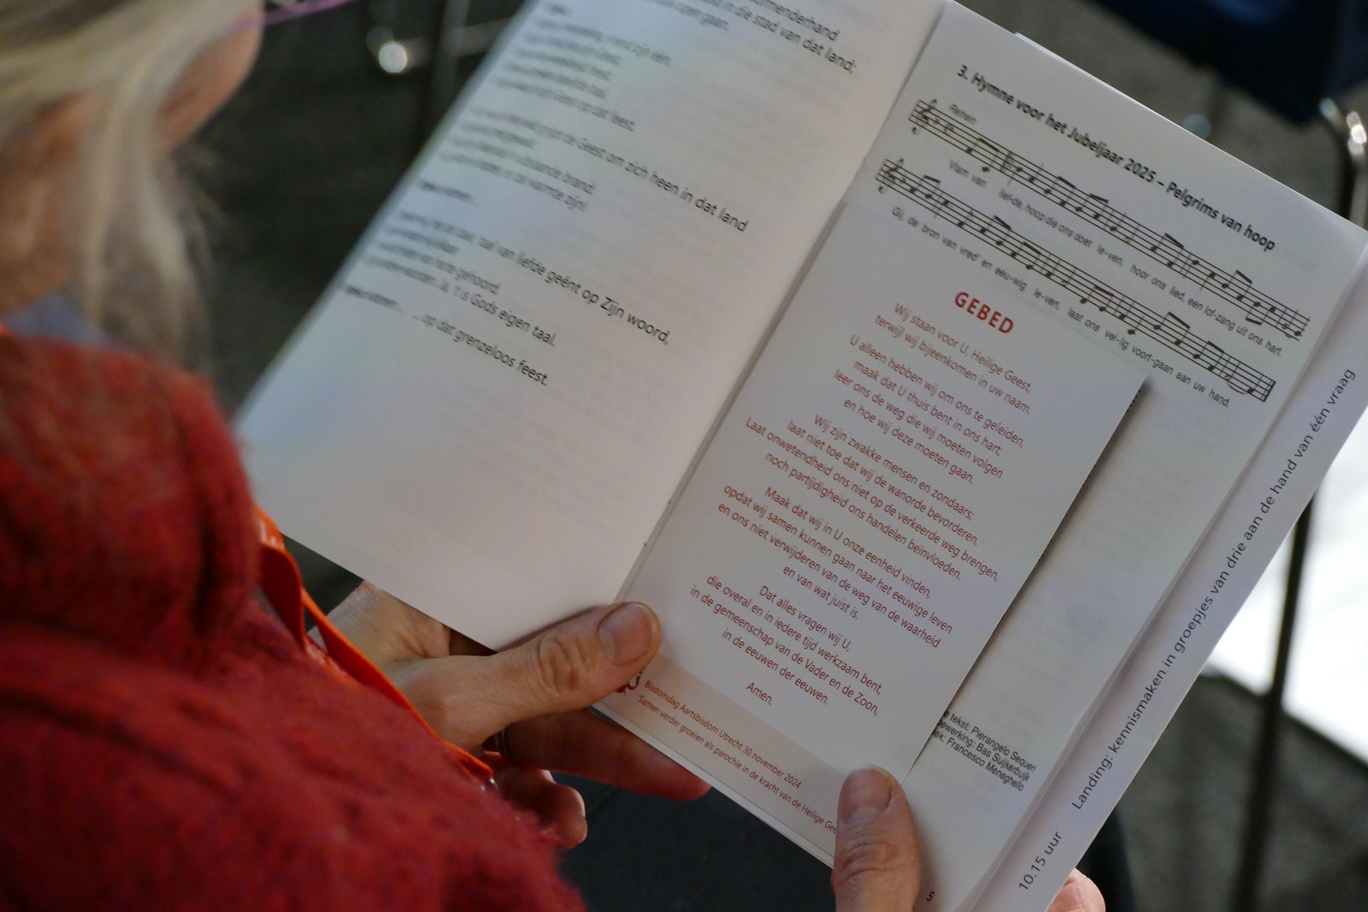 in die stad van dat land;
open gaan.
feest.
de Geest om zich heen in dat land
brand:
warmte zijn!
taal van liefde geënt op Zijn woord,
gehoord.
Ja, 't is Gods eigen taal.
... op dat grenzeloos feest.
3. Hymne voor het Jubeljaar 2025 – Pelgrims van hoop
Refrein
Vlam van lief-de, hoop die ons doet le-ven, hoor ons lied, een lof-zang uit ons hart.
Gij, de bron van vred' en eeu-wig le-ven, laat ons vei-lig voort-gaan aan uw hand.
GEBED
Wij staan voor U, Heilige Geest,
terwijl wij bijeenkomen in uw naam.
U alleen hebben wij om ons te geleiden,
maak dat U thuis bent in ons hart;
leer ons de weg die wij moeten volgen
en hoe wij deze moeten gaan.
Wij zijn zwakke mensen en zondaars;
laat niet toe dat wij de wanorde bevorderen.
Laat onwetendheid ons niet op de verkeerde weg brengen,
noch partijdigheid ons handelen beïnvloeden.
Maak dat wij in U onze eenheid vinden,
opdat wij samen kunnen gaan naar het eeuwige leven
en ons niet verwijderen van de weg van de waarheid
en van wat juist is.
Dat alles vragen wij U,
die overal en in iedere tijd werkzaam bent,
in de gemeenschap van de Vader en de Zoon,
in de eeuwen der eeuwen.
Amen.
Bisdomdag Aartsbisdom Utrecht 30 november 2024
Samen verder groeien als parochie in de kracht van de Heilige
tekst: Pierangelo Sequeri
bewerking: Bas Suijkerbuijk
Francesco Meneghello
5
10.15 uur Landing: kennismaken in groepjes van drie aan de hand van één vraag